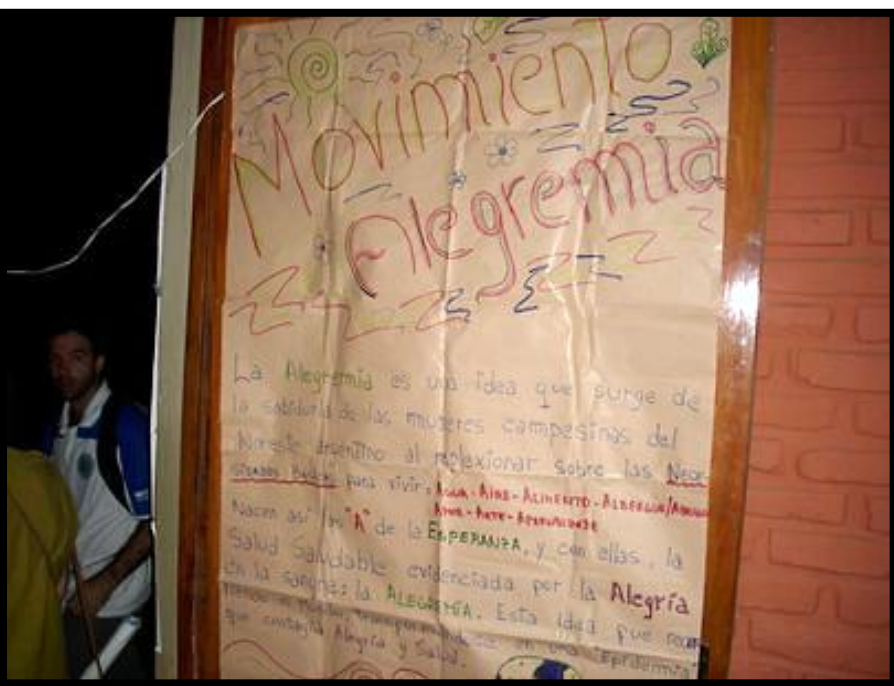 Movimiento
Alegremia
La Alegremia es una idea que surge de
la sabiduría de las mujeres campesinas del
Noreste argentino al reflexionar sobre las Nece-
sidades Básicas para vivir: AGUA - AIRE - ALIMENTO - ALBERGUE/
AMOR - ARTE -
Nacen así las "A" de la ESPERANZA, y con ellas, la
Salud Saludable evidenciada por la Alegría
en la sangre: la ALEGREMIA. Esta idea fue
el mundo, en una "Epidemia"
que contagia Alegría y Salud.